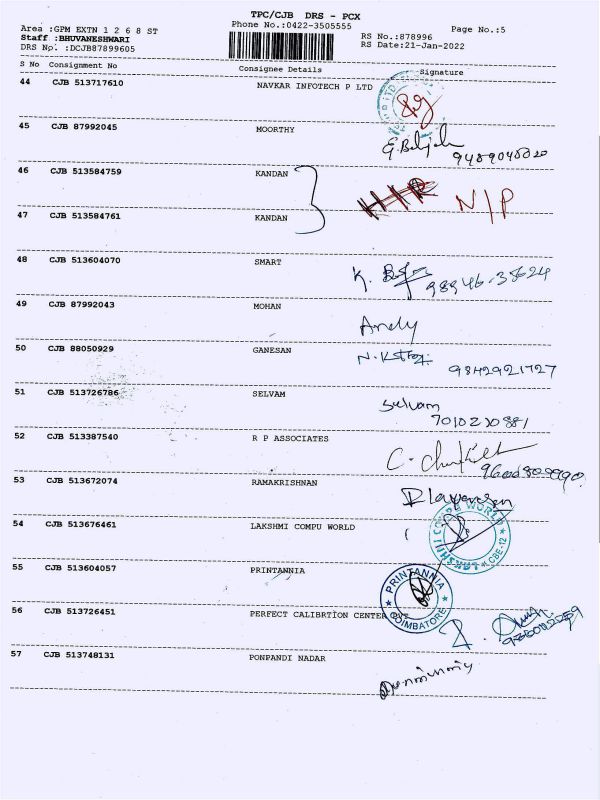 TPC/CJB DRS - PCX
Area :GPM EXTN 1 2 6 8 ST
Phone No.:0422-3505555
Page No.:5
Staff :BHUVANESHWARI
RS No.:878996
DRS No. :DCJB87899605
RS Date:21-Jan-2022
S No Consignment No Consignee Details Signature
44 CJB 513717610 NAVKAR INFOTECH P LTD
45 CJB 87992045 MOORTHY
46 CJB 513584759 KANDAN
N/P
47 CJB 513584761 KANDAN
48 CJB 513604070 SMART
98946-35624
49 CJB 87992043 MOHAN
Andy
50 CJB 88050929 GANESAN
9842921727
51 CJB 513726786 SELVAM
Selvam
7010230881
52 CJB 513387540 R P ASSOCIATES
53 CJB 513672074 RAMAKRISHNAN
54 CJB 513676461 LAKSHMI COMPU WORLD
LAKSHMI COMPU WORLD CBE-12
55 CJB 513604057 PRINTANNIA
PRINTANNIA COIMBATORE
56 CJB 513726451 PERFECT CALIBRTION CENTER PVT
57 CJB 513748131 PONPANDI NADAR